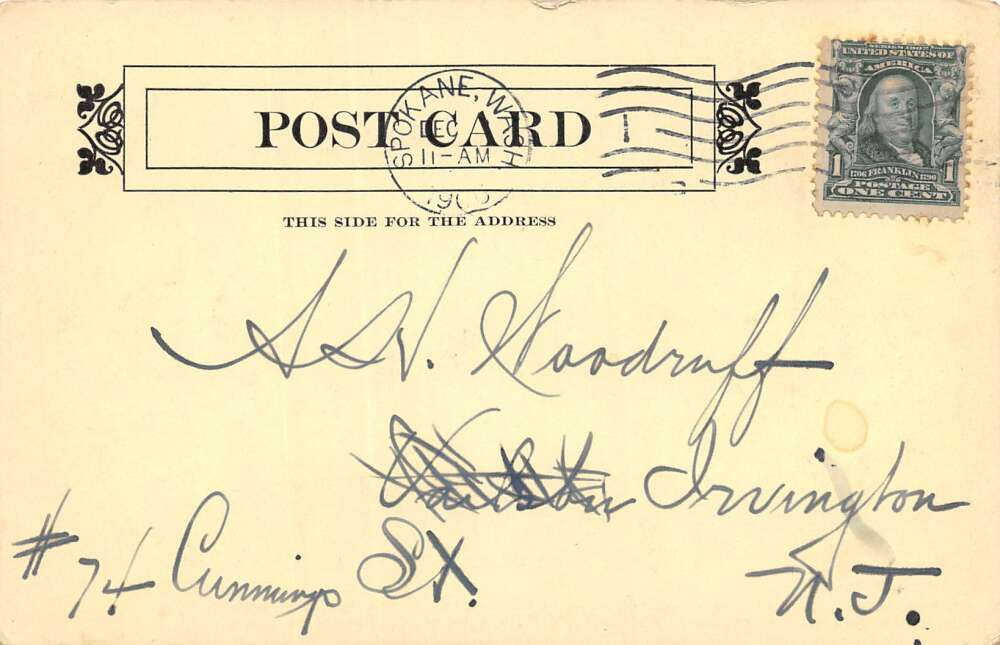 POST CARD
SPOKANE, WASH
DEC
11-AM
THIS SIDE FOR THE ADDRESS
SERIES 1902
UNITED STATES OF
AMERICA
1 1706 FRANKLIN 1790 1
POSTAGE
ONE CENT
S. V. Woodruff
Irvington
# 74 Cummings St.
N.J.